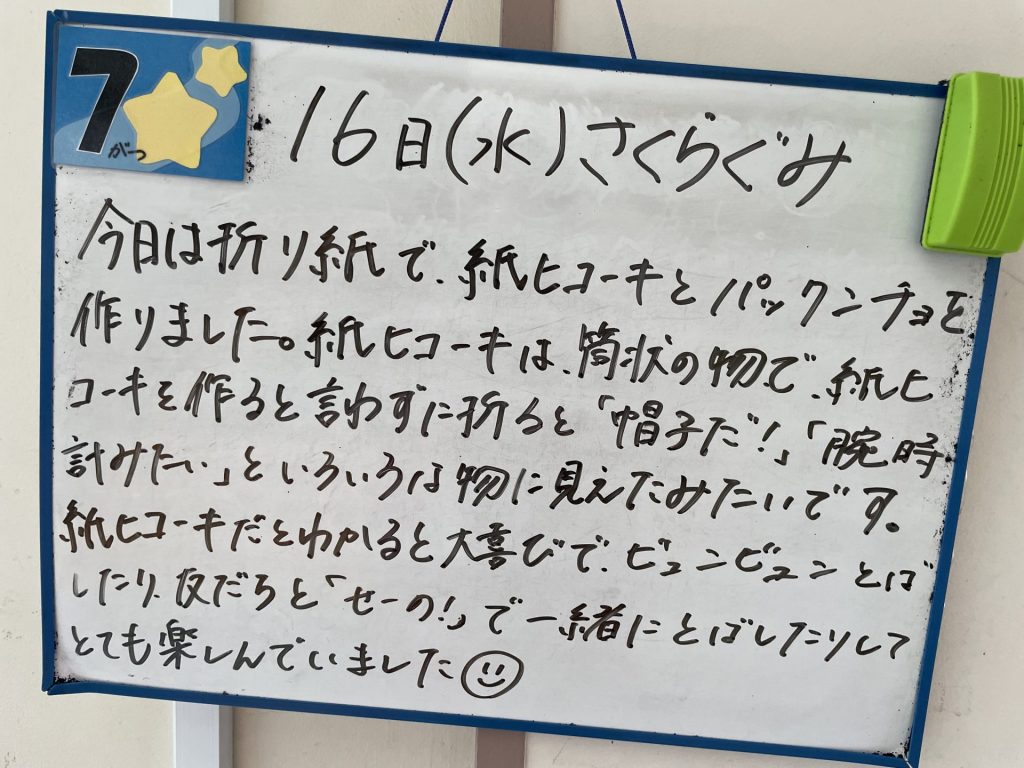 7
がつ
16日(水)さくらぐみ
今日は折り紙で、紙ヒコーキとパックンチョを
作りました。紙ヒコーキは、筒状の物で、紙ヒ
コーキを作ると言わずに折ると「帽子だ!」「腕時
計みたい」といろいろな物に見えたみたいです。
紙ヒコーキだとわかると大喜びで、ビュンビュンとば
したり、友だちと「せーの!」で一緒にとばしたりして
とても楽しんでいました